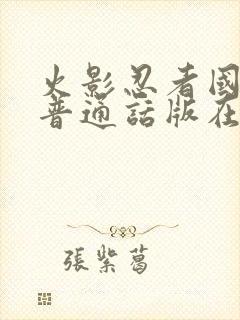 火影忍者國
普通話版在
張紫葛